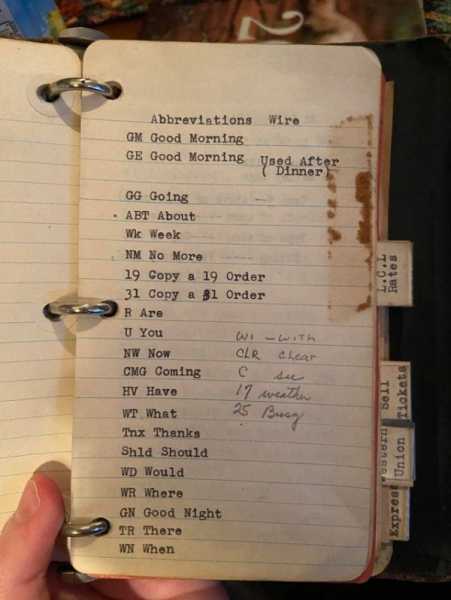 Abbreviations Wire
GM Good Morning
GE Good Morning Used After
( Dinner)
GG Going
ABT About
Wk Week
NM No More
19 Copy a 19 Order
31 Copy a 31 Order
R Are
U You
WI - WITH
NW Now
CLR Clear
CMG Coming
C see
HV Have
17 weather
WT What
25 Busy
Tnx Thanks
Shld Should
WD Would
WR Where
GN Good Night
TR There
WN When
L.C.L
Rates
Sell
Tickets
Western
Union
Express